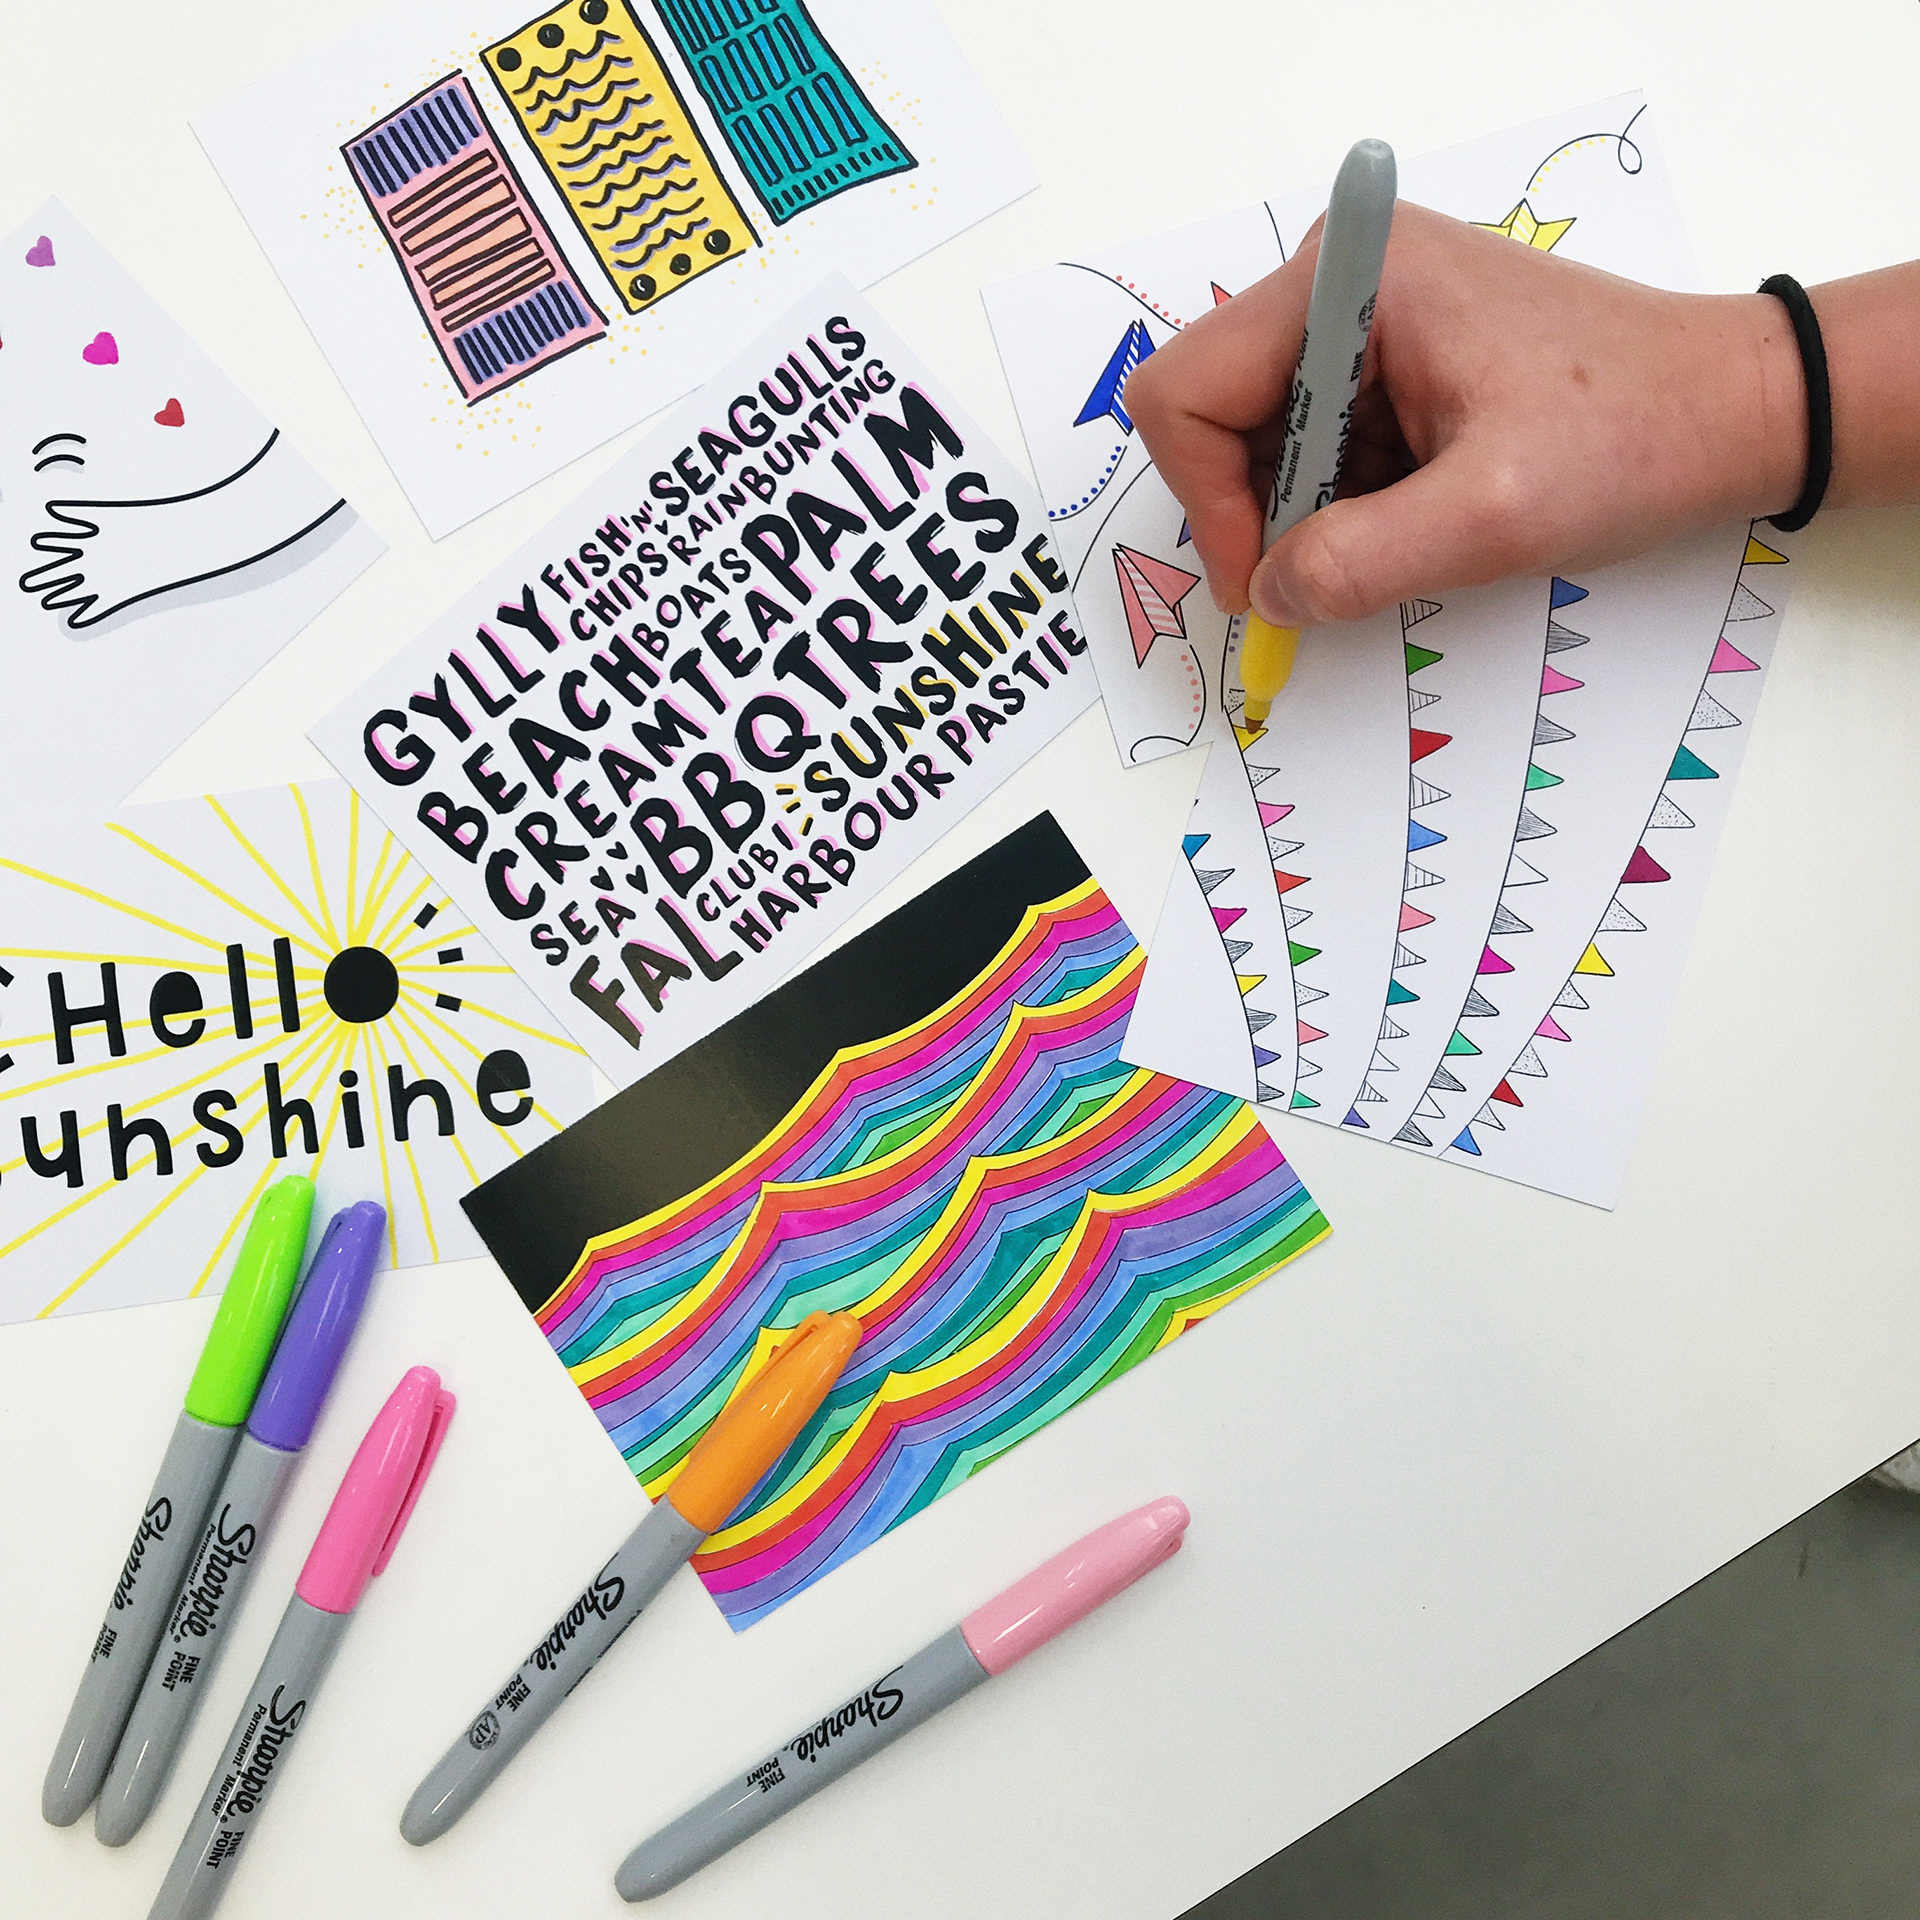 SEAGULLS
FISH 'N'
CHIPS RAIN BUNTING
GYLLY
BEACH BOATS PALM
CREAM TEA TREES
SEA BBQ
CLUB I SUNSHINE
FAL HARBOUR PASTIE
Hello
unshine
Sharpie
FINE
POINT
Permanent Marker
Sharpie
FINE
POINT
Sharpie
Permanent Marker
FINE
POINT
Sharpie
Permanent Marker
FINE
POINT
Sharpie
FINE
POINT
AP
Sharpie
FINE
POINT